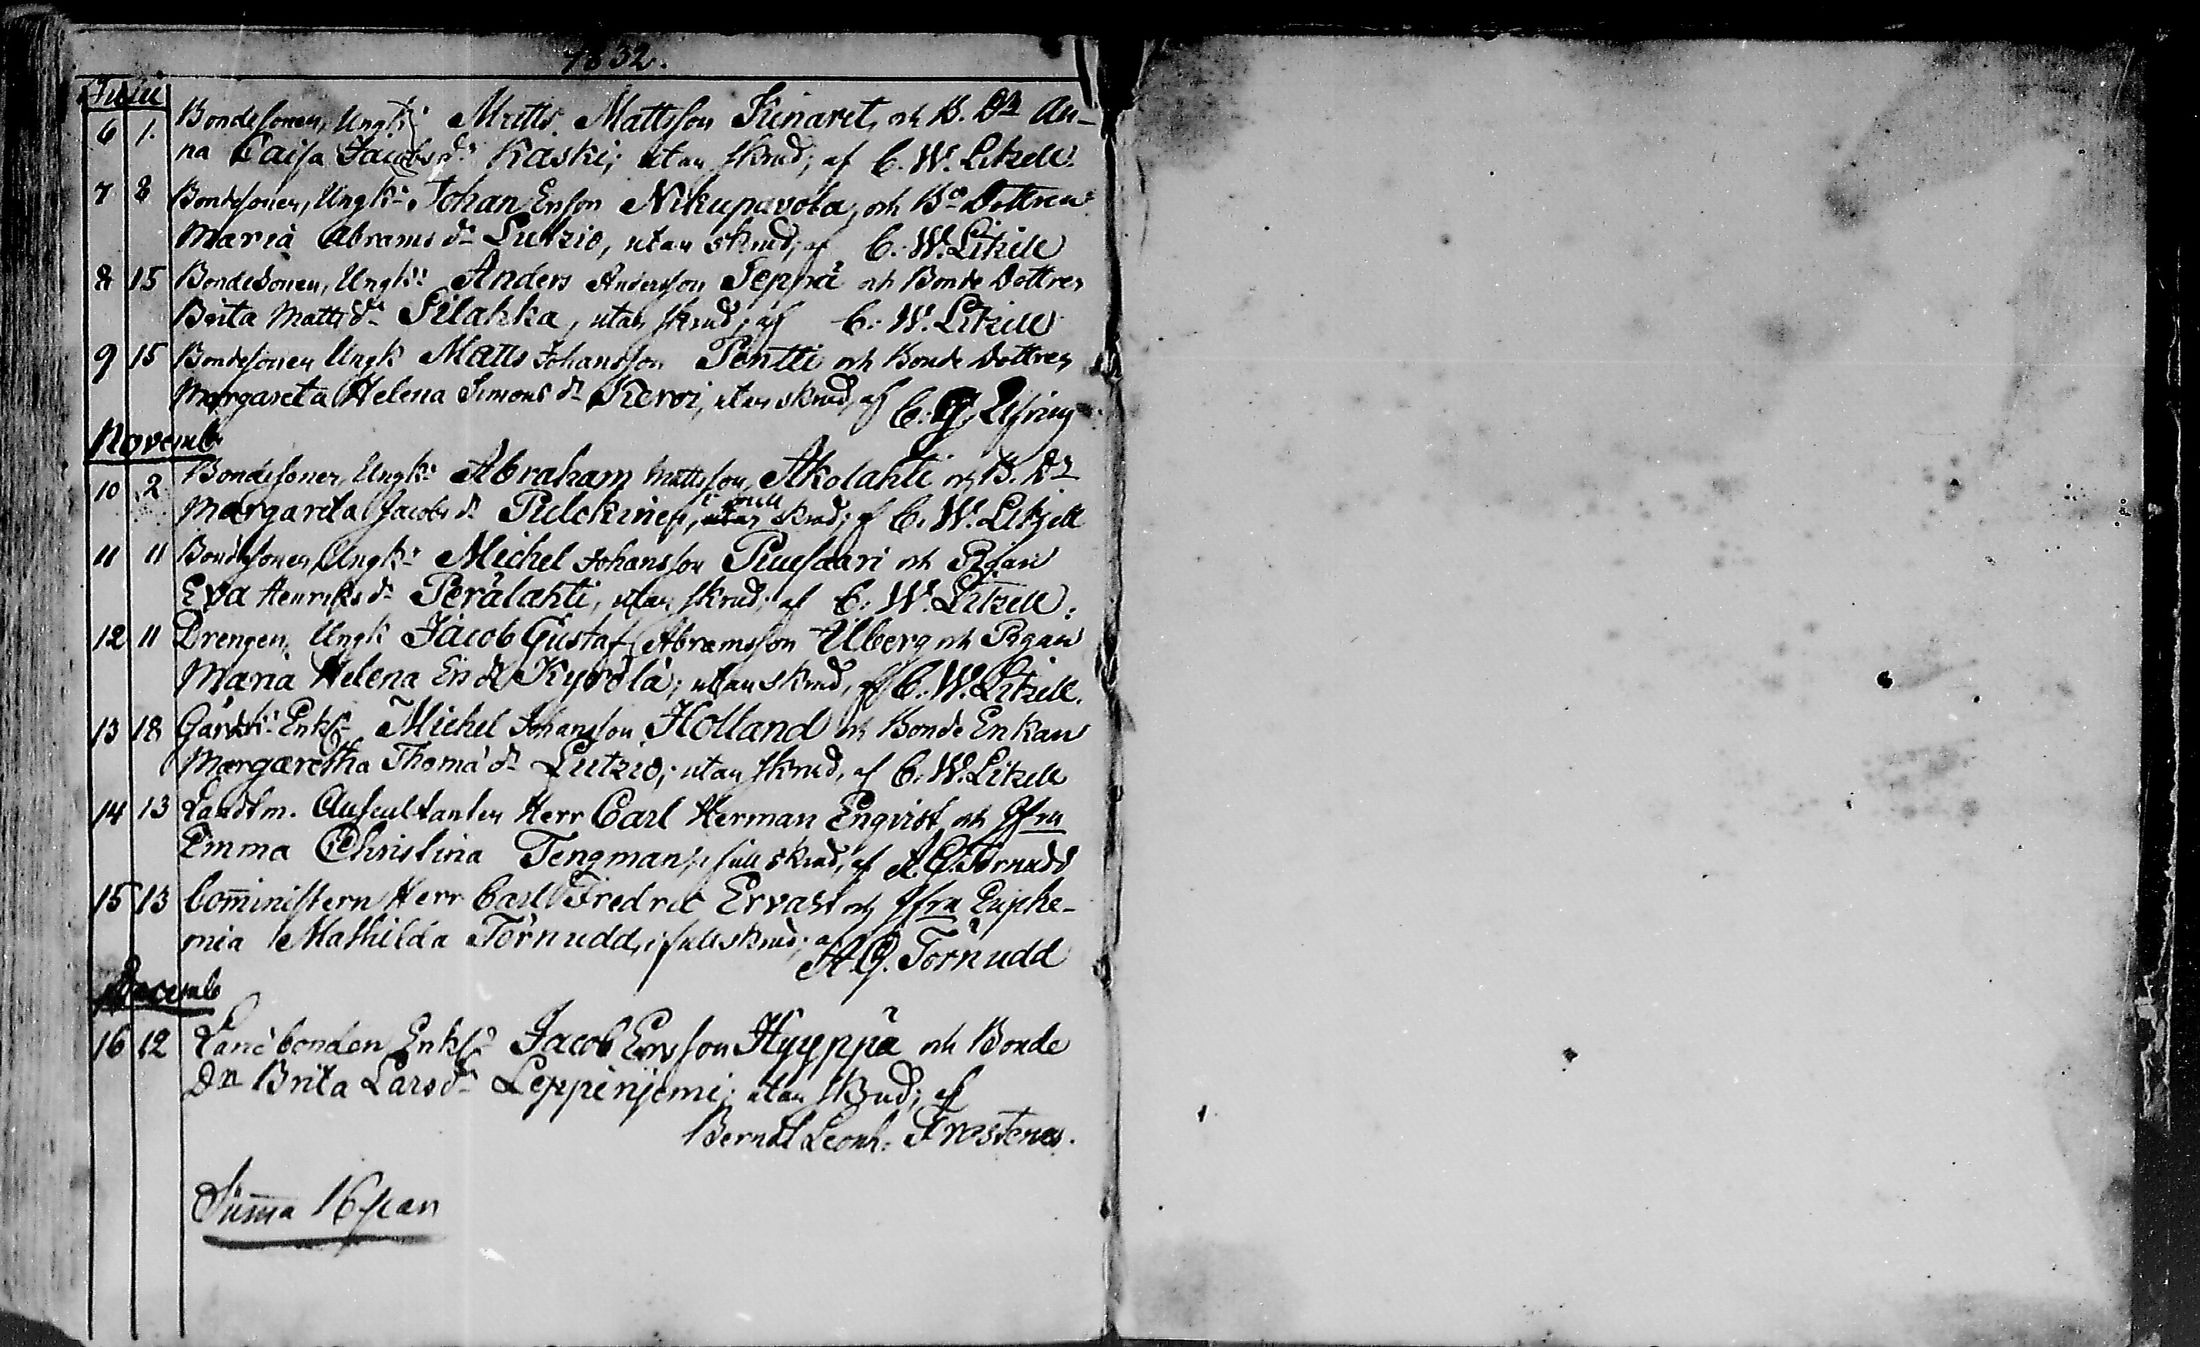 1832.
Julii
6 1. Bondesonen, Ungk: Matts Mattsson Kinaret, och B. Dn An-
na Caisa Jacobs dr Kaski; utan skrud; af C. W. Litzell.
7 8 Bondesonen, Ungk: Johan Ersson Nikupavola, och Bde Dottren
Maria Abrams dr Lutzio, utan skrud; af C. W. Litzell
8 15 Bondesonen, Ungk: Anders Andersson Seppä och Bonde Dottren
Brita Matts dr Pilahka, utan skrud; af C. W. Litzell
9 15 Bondesonen Ungk Matts Johansson Pentti och Bonde Dottren
Margareta Helena Simons dr Keroi, utan skrud, af C. G.
Novemb
10 2 Bondesonen, Ungk: Abraham Mattsson Akolahti och B. Dr
Margareta Jacobs dr Pulckinen, i full skrud; af C. W. Litzell
11 11 Bondesonen, Ungk: Michel Johansson Puusaari och Pigan
Eva Henriks dr Perälahti, utan skrud; af C. W. Litzell.
12 11 Drengen, Ungk Jacob Gustaf Abramsson Uberg och Pigan
Maria Helena Ers dr Kyrölä; utan skrud, af C. W. Litzell.
13 18 Enkl: Michel Johansson Holland och Bonde Enkan
Margaretha Thomæ dr Lutzio; utan skrud, af C. W. Litzell
14 13 Landtm. Auscultanten Herr Carl Herman Enqvist och Jfru
Emma Christina Tengman, i full skrud, af A. G. Törnudd
15 13 Com̄inistern Herr Carl Fredric Ervast och Jfru Euphe-
mia Mathilda Törnudd, i full skrud; af A. G. Törnudd
Decemb
16 12 Landbonden Enkl: Jacob Ersson Hyyppä och Bonde
Dn Brita Lars dr Leppinjemi; utan skrud; af
Berndt Leonh: Frosterus.
Sum̄a 16 par